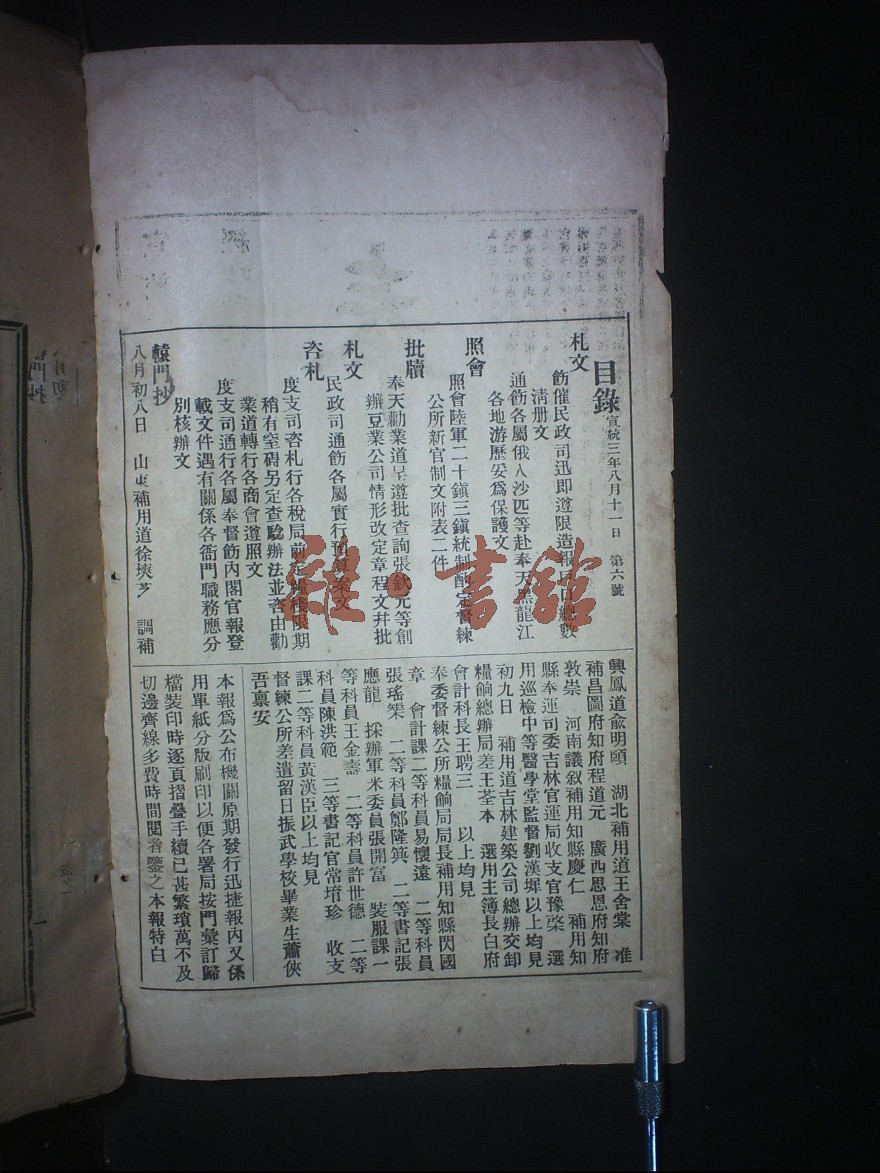 目錄 宣統三年八月十一日 第六號
札文
飭催民政司迅即遵限造報戶口總數
清册文
通飭各屬俄人沙匹等赴奉天黑龍江
各地游歷妥爲保護文
照會
照會陸軍二十鎭三鎭統制酌定督練
公所新官制文附表二件
批牘
奉天勸業道呈遵批查詢張欽元等創
辦豆業公司情形改定章程文幷批
札文
民政司通飭各屬實行預算案文
咨札
度支司咨札行各稅局前定糧棧限期
稍有窒碍另定查騐辦法並咨由勸
業道轉行各商會遵照文
度支司通行各屬奉督飭內閣官報登
載文件遇有關係各衙門職務應分
別核辦文
轅門抄
八月初八日 山東補用道徐 芝 調補
興鳳道俞明頤 湖北補用道王舍棠 准
補昌圖府知府程道元 廣西思恩府知府
敦崇 河南議叙補用知縣慶仁 補用知
縣奉運司委吉林官運局收支官豫棨 選
用巡檢中等醫學堂監督劉漢墀以上均見
初九日 補用道吉林建築公司總辦交卸
糧餉總辦局差王荃本 選用主簿長白府
會計科長王聘三 以上均見
奉委督練公所糧餉局局長補用知縣閃國
章 會計課二等科員易懷遠 二等科員
張瑤 二等科員鄭隆 二等書記張
應龍 採辦軍米委員張開冨 裝服課一
等科員王金壽 二等科員許世德 二等
科員陳洪範 三等書記官常堉珍 收支
課二等科員黃漢臣以上均見
督練公所差遣留日振武學校畢業生蕭俠
吾禀安
本報爲公布機關原期發行迅捷報內又係
用單紙分版刷印以便各署局按門彙訂歸
檔裝印時逐頁摺疊手續已甚繁瑣萬不及
切邊齊線多費時間閱者鑒之本報特白
雜·書館